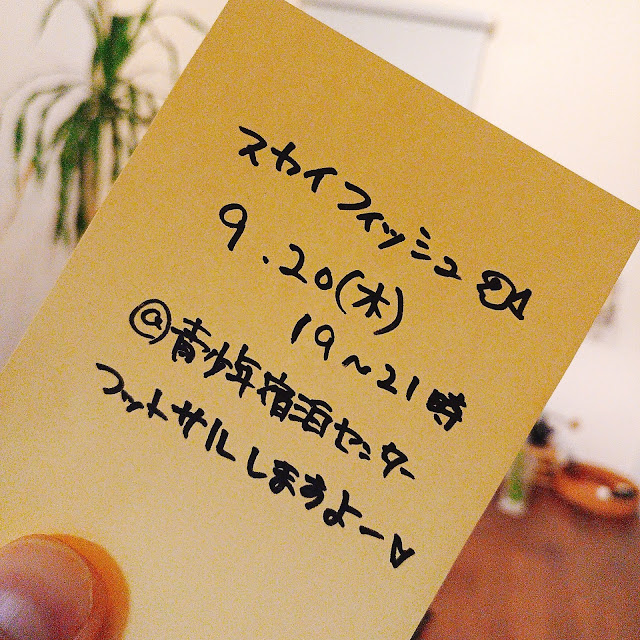 スカイフィッシュ
9.20(木)
19〜21時
@青少年宿泊センター
フットサルしますよー